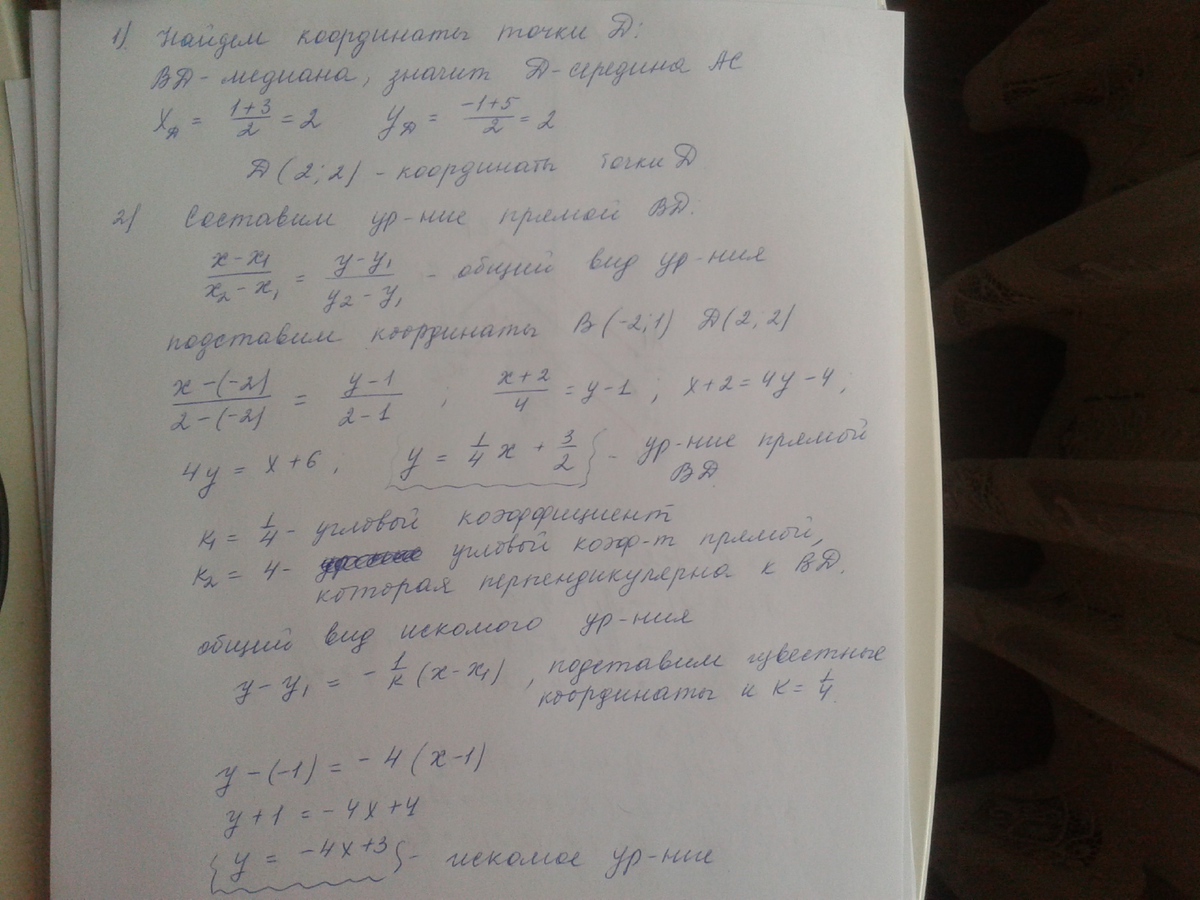 1). Найдем координаты точки D:
BD - медиана, значит D - середина AC
x_D = (1+3)/2 = 2 y_D = (-1+5)/2 = 2
D (2; 2) - координаты точки D
2) Составим ур-ние прямой BD:
(x-x₁)/(x₂-x₁) = (y-y₁)/(y₂-y₁) - общий вид ур-ния
подставим координаты B (-2;1) D(2; 2)
(x-(-2))/(2-(-2)) = (y-1)/(2-1) ; (x+2)/4 = y-1 ; x+2 = 4y-4 ;
4y = x+6, {y = 1/4 x + 3/2} - ур-ние прямой
BD.
к₁ = 1/4 - угловой коэффициент
к₂ = 4 - угловой коэф-т прямой,
которая перпендикулярна к BD.
общий вид искомого ур-ния
y - y₁ = - 1/к (x-x₁) , подставим известные
координаты и к = 1/4.
y - (-1) = -4 (x-1)
y + 1 = -4x+4
{y = -4x+3} - искомое ур-ние